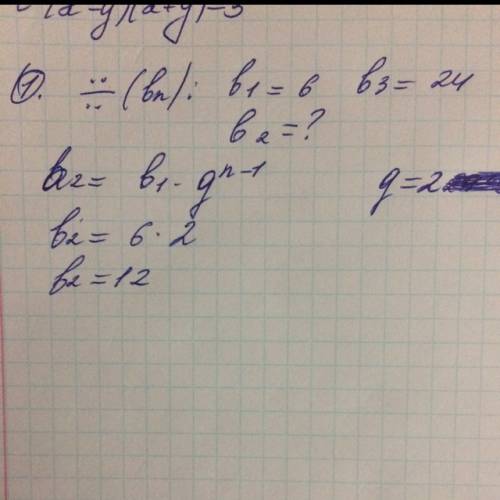 (a-y)(a+y)-3
①. ÷÷ (bn): b1 = 6 b3 = 24
b2 = ?
b2 = b1 · q^n-1 q = 2
b2 = 6 · 2
b2 = 12